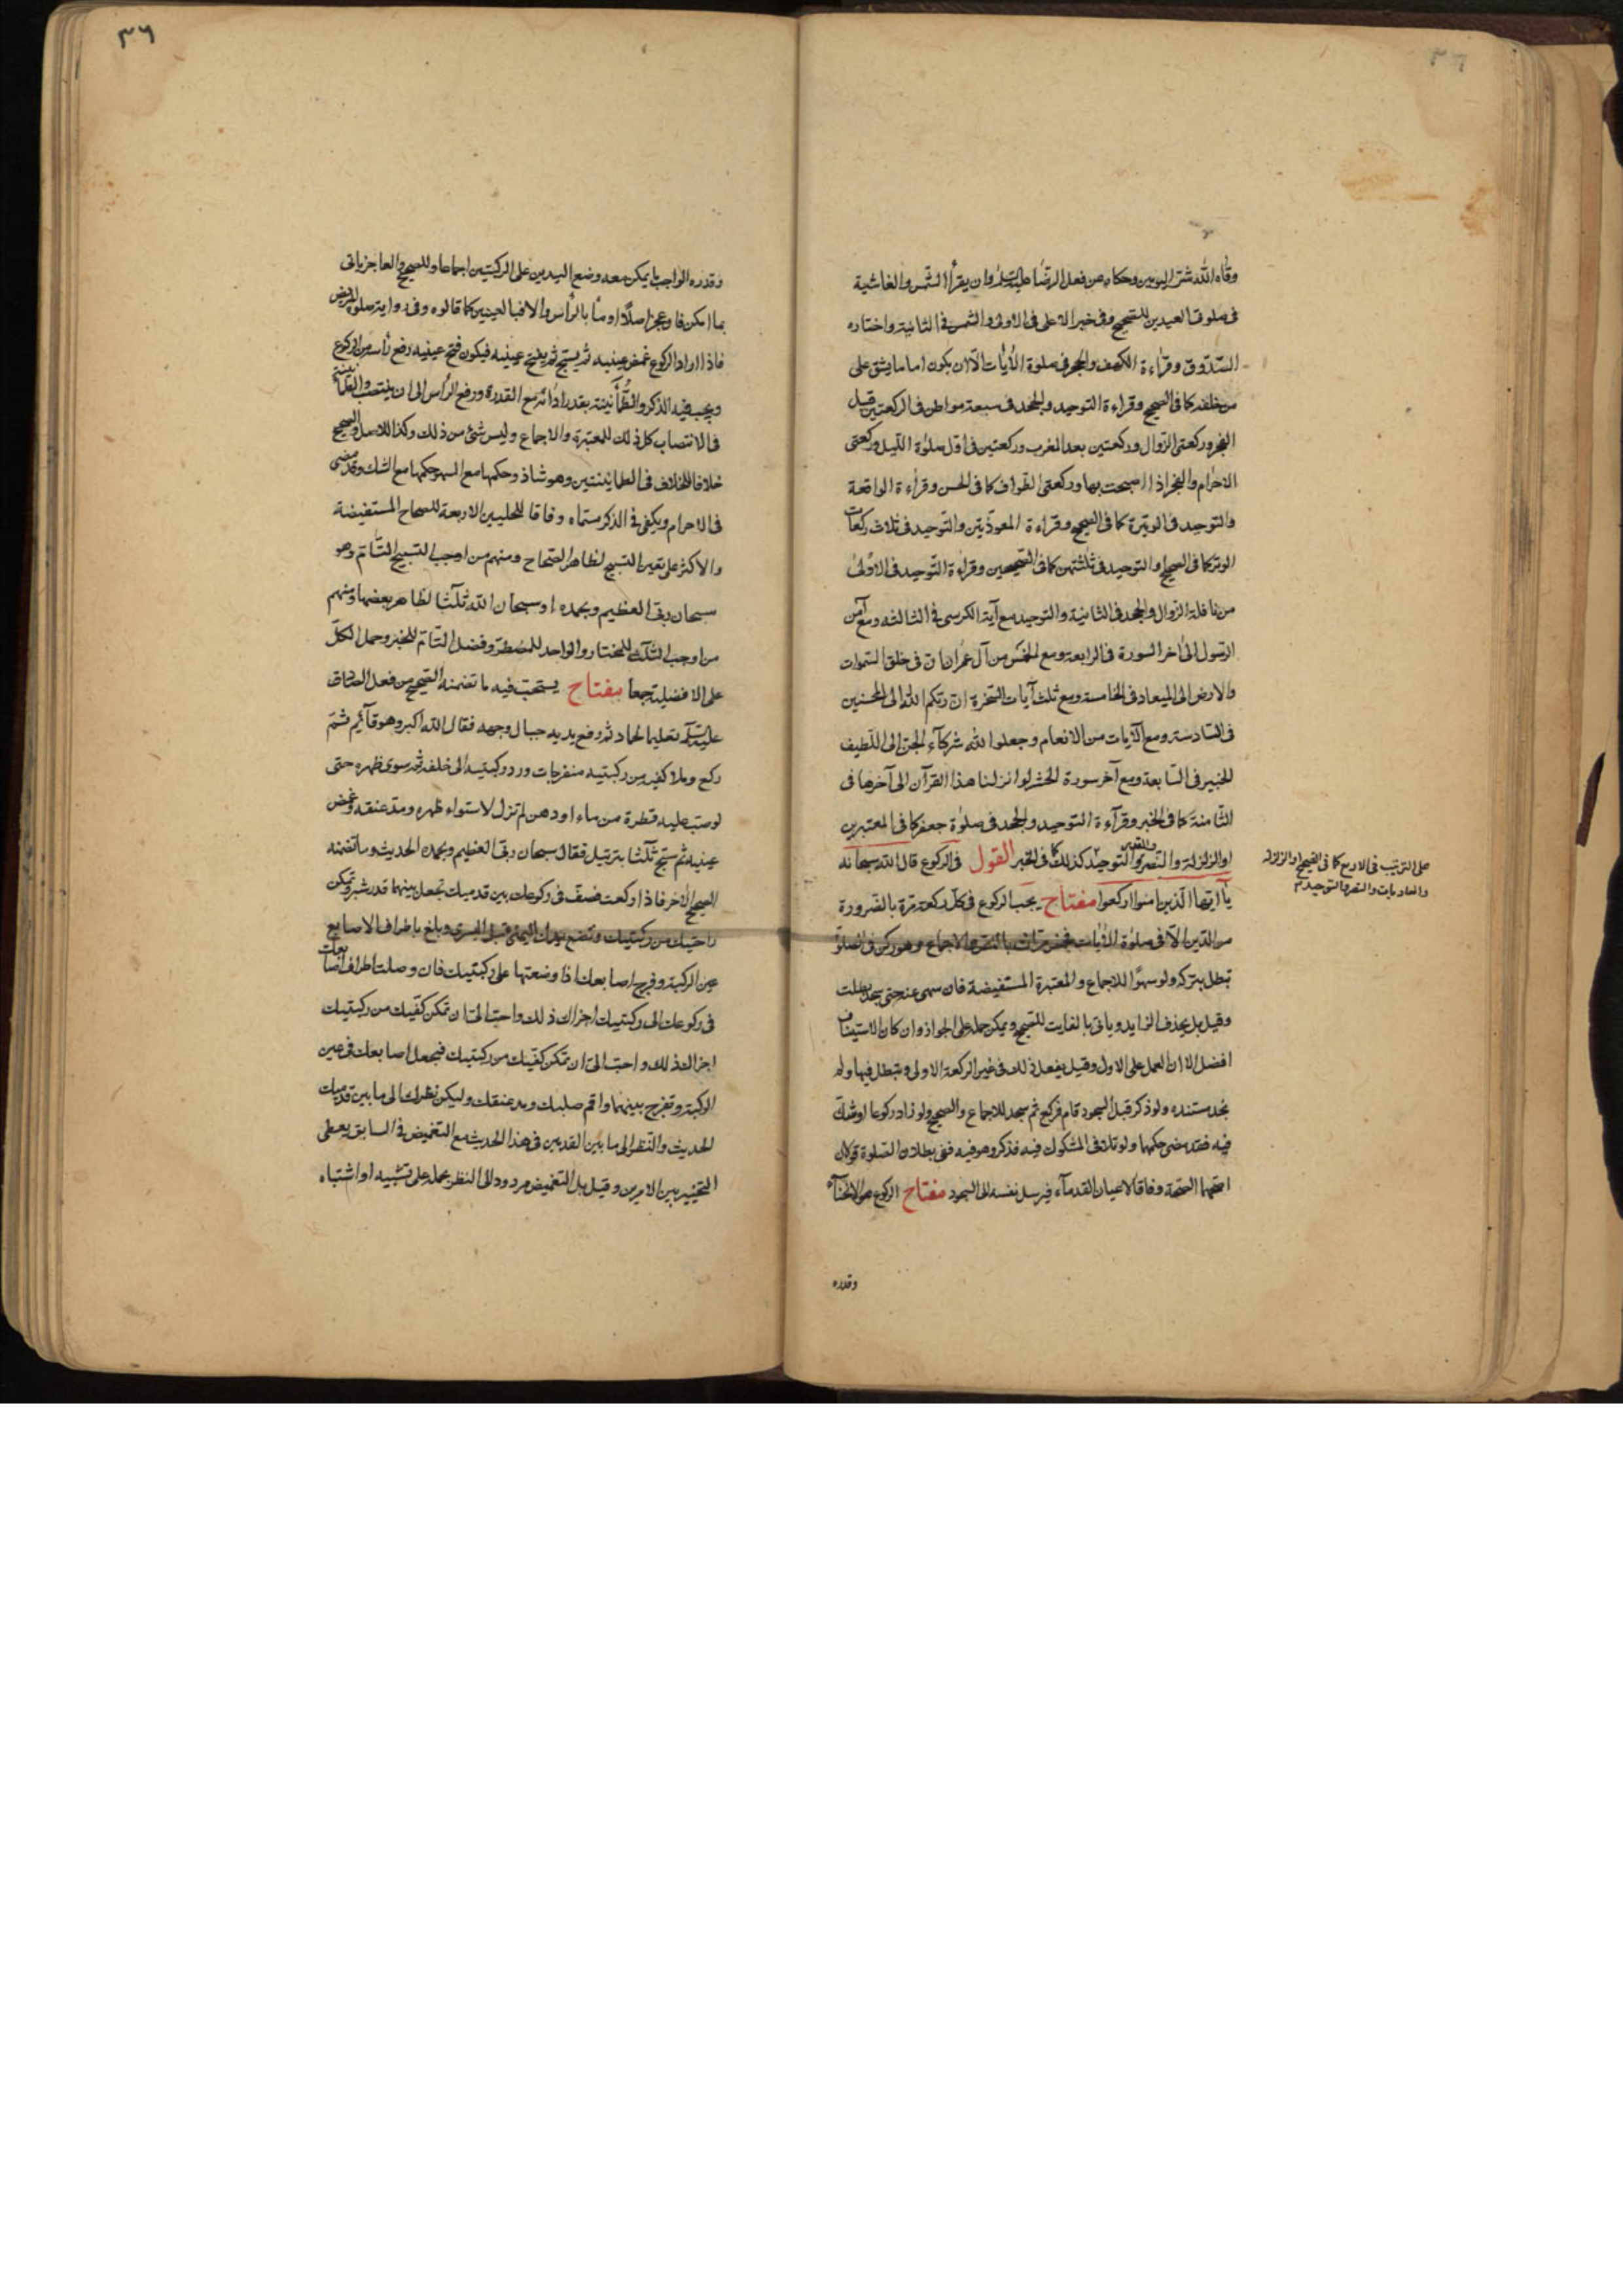 ٣٦
وقاه الله شر اليومين وحكاه عن فعل الرضا عليه السلم وان يقرأ الشمس والغاشية
فى صلوة العيدين للصحيح وفى خبر الاعلى فى الاولى والشمس فى الثانية واختاره
الصدوق وقراءة الكهف والحجر فى صلوة الأيات الا ان يكون اماما يشق على
من خلفه كما فى الصحيح وقراءة التوحيد والجحد فى سبعة مواطن فى الركعتين قبل
الفجر وركعتى الزوال وركعتين بعد المغرب وركعتين فى اول صلوة الليل وركعتى
الاحرام والفجر اذا اصبحت بها وركعتى الطواف كما فى الحسن وقراءة الواقعة
والتوحيد فى الوتيرة كما فى الصحيح وقراءة المعوذتين والتوحيد فى ثلاث ركعات
الوتر كما فى الصحيح او التوحيد فى ثلثتهن كما فى الصحيحين وقراءة التوحيد فى الاولى
من نافلة الزوال والجحد فى الثانية والتوحيد مع آية الكرسى فى الثالثه ومع آمن
الرسول الى اخر السورة فى الرابعة ومع الخمس من آل عمران ان فى خلق السموات
والارض الى الميعاد فى الخامسة ومع ثلث آيات السخرة ان ربكم الله الى المحسنين
فى السادسة ومع الآيات من الانعام وجعلوا لله شركآء الجن الى اللطيف
الخبير فى السابعة ومع آخر سورة الحشر لو انزلنا هذا القرآن الى آخرها فى
الثامنة كما فى الخبر وقرآءة التوحيد والجحد فى صلوة جعفر كما فى المعتبرين
او الزلزلة والنصر والقدر والتوحيد كذلك كما فى الخبر القول فى الركوع قال الله سبحانه
على الترتيب فى الاربع كما فى الصحيح او الزلزله
والعاديات والنصر والتوحيد
يآ ايها الذين امنوا اركعوا مفتاح يجب الركوع فى كل ركعة مرة بالضرورة
من الدين الا فى صلوة الأيات فخمس مرات بالنص والاجماع وهو ركن فى الصلوة
تبطل بتركه ولو سهوا للاجماع والمعتبرة المستفيضة فان سهى عنه حتى سجد بطلت
وقيل بل يحذف الزايد وياتى بالفايت للصحيح ويمكن حمله على الجواز وان كان الاستيناف
افضل الا ان العمل على الاول وقيل يفعل ذلك فى غير الركعة الاولى وتبطل فيها ولم
نجد مستنده ولو ذكر قبل السجود قام فركع ثم سجد للاجماع والصحيح ولو زاد ركوعا او شك
فيه فقد مضى حكمها ولو تلافى المشكوك فيه فذكر وهو فيه ففى بطلان الصلوة قولان
اصحهما الصحة وفاقا لاعيان القدمآء فيرسل نفسه الى السجود مفتاح الركوع هو الانحنآء
وقدره
٣٦
وقدره الواجب ما يمكن معه وضع اليدين على الركبتين اجماعا وللصحيح والعاجز ياتى
بما امكن فان عجز اصلا اومأ بالرأس والا فبالعينين كما قالوه وفى رواية صلوة المريض
فاذا اراد الركوع غمض عينيه ثم يسبح ثم يفتح عينيه فيكون فتح عينيه رفع رأسه من الركوع
ويجب فيه الذكر والطمأنينة بقدر ادائه مع القدرة ورفع الرأس الى ان ينتصب والطمأنينة
فى الانتصاب كل ذلك للمعتبرة والاجماع وليس شئ من ذلك ركنا للاصل والصحيح
خلافا للخلاف فى الطمانينتين وهو شاذ وحكمها مع السهو حكمها مع الشك وقد مضى
فى الاحرام ويكفى فى الذكر مسماه وفاقا للحليين الاربعة للصحاح المستفيضة
والاكثر على تعين التسبيح لظاهر الصحاح ومنهم من اوجب التسبيح التام وهو
سبحان ربى العظيم وبحمده او سبحان الله ثلثا لظاهر بعضها ومنهم
من اوجب الثلث للمختار والواحد للمضطر وفضل التام للخبر وحمل الكل
على الافضلية جمعا مفتاح يستحب فيه ما تضمنه الصحيح من فعل الصادق
عليه السلم تعليما لحماد ثم رفع يديه حيال وجهه فقال الله اكبر وهو قآئم ثم
ركع وملا كفيه من ركبتيه منفرجات ورد ركبتيه الى خلفه ثم سوى ظهره حتى
لو صب عليه قطرة من ماء او دهن لم تزل لاستواء ظهره ومد عنقه وغمض
عينيه ثم سبح ثلثا بترتيل فقال سبحان ربى العظيم وبحمده الحديث وما تضمنه
الصحيح الأخر فاذا ركعت فصف فى ركوعك بين قدميك تجعل بينهما قدر شبر وتمكن
راحتيك من ركبتيك وتضع يدك اليمنى قبل اليسرى وبلغ باطراف الاصابع
عين الركبة وفرج اصابعك اذا وضعتها على ركبتيك فان وصلت اطراف اصابعك
فى ركوعك الى ركبتيك اجزاك ذلك واحب الى ان تمكن كفيك من ركبتيك
اجزاك ذلك واحب الى ان تمكن كفيك من ركبتيك فتجعل اصابعك فى عين
الركبة وتفرج بينهما واقم صلبك ومد عنقك وليكن نظرك الى ما بين قدميك
الحديث والنظر الى ما بين القدمين فى هذا الحديث مع التغميض فى السابق يعطى
التخيير بين الامرين وقيل بل التغميض مردود الى النظر بحمله على تشبيه او اشتباه